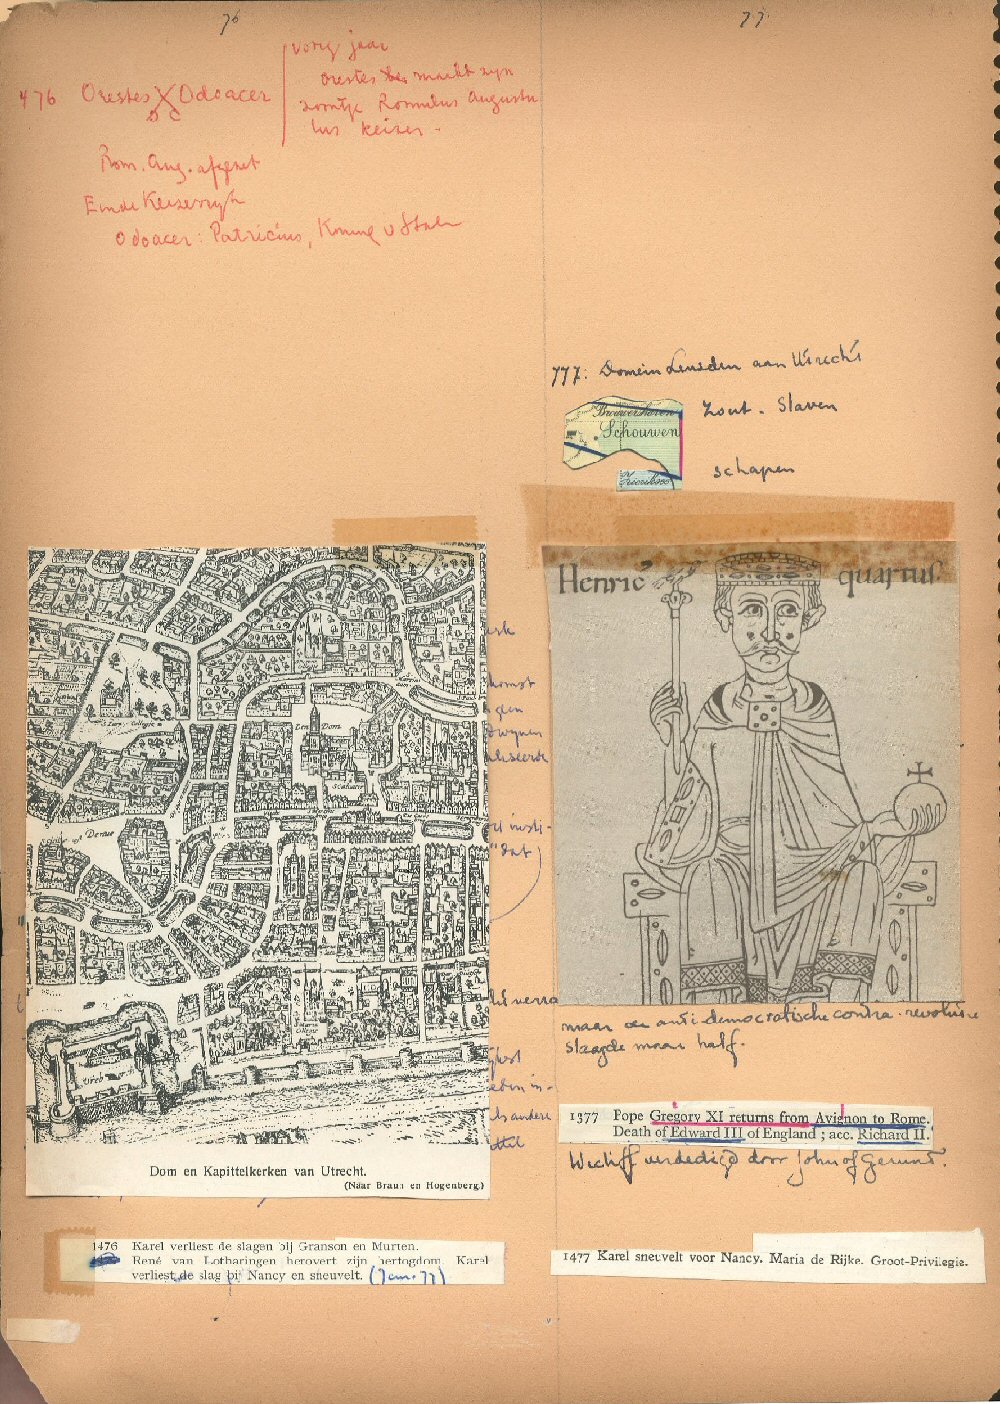 76
77
476 Orestes X Odoacer
vorig jaar
Orestes maakt zijn
zoontje Romulus Augustu
lus keizer -
Rom. Aug. afgezet
Einde Keizerrijk
Odoacer: Patricius, Koning v Italie
777: Domein Leusden aan Utrecht
Brouwershaven
Schouwen
Zierikzee
zout - Slaven
schapen
Henric quartus
Ten Dom
Dom en Kapittelkerken van Utrecht.
(Naar Braun en Hogenberg.)
komst
gden
dwynen
aliseerde
insti-
"dat
verra
eden in-
ls andere
maar de anti-democratische contra-revolutie
slaagde maar half.
1377 Pope Gregory XI returns from Avignon to Rome.
Death of Edward III of England; acc. Richard II.
Wecliff verdedigd door John of Gaunt.
1476 Karel verliest de slagen bij Granson en Murten.
René van Lotharingen herovert zijn hertogdom. Karel
verliest de slag bij Nancy en sneuvelt. (Jan. 77)
1477 Karel sneuvelt voor Nancy. Maria de Rijke. Groot-Privilegie.